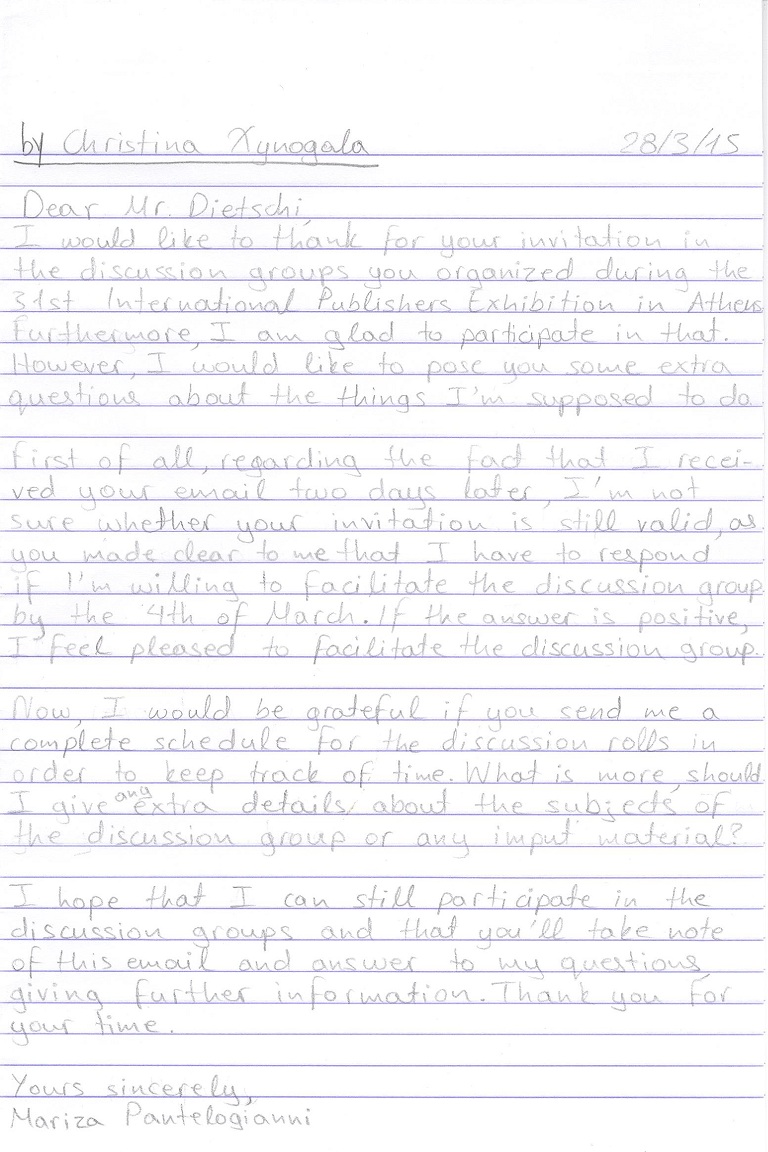 by Christina Xynogala 28/3/15
Dear Mr. Dietschi,
I would like to thank for your invitation in
the discussion groups you organized during the
31st International Publishers Exhibition in Athens.
Furthermore, I am glad to participate in that.
However, I would like to pose you some extra
questions about the things I'm supposed to do.
First of all, regarding the fact that I recei-
ved your email two days later, I'm not
sure whether your invitation is still valid, as
you made clear to me that I have to respond
if I'm willing to facilitate the discussion group
by the 4th of March. If the answer is positive,
I feel pleased to facilitate the discussion group.
Now, I would be grateful if you send me a
complete schedule for the discussion rolls in
order to keep track of time. What is more, should
I give any extra details about the subjects of
the discussion group or any imput material?
I hope that I can still participate in the
discussion groups and that you'll take note
of this email and answer to my questions,
giving further information. Thank you for
your time.
Yours sincerely,
Mariza Pantelogianni